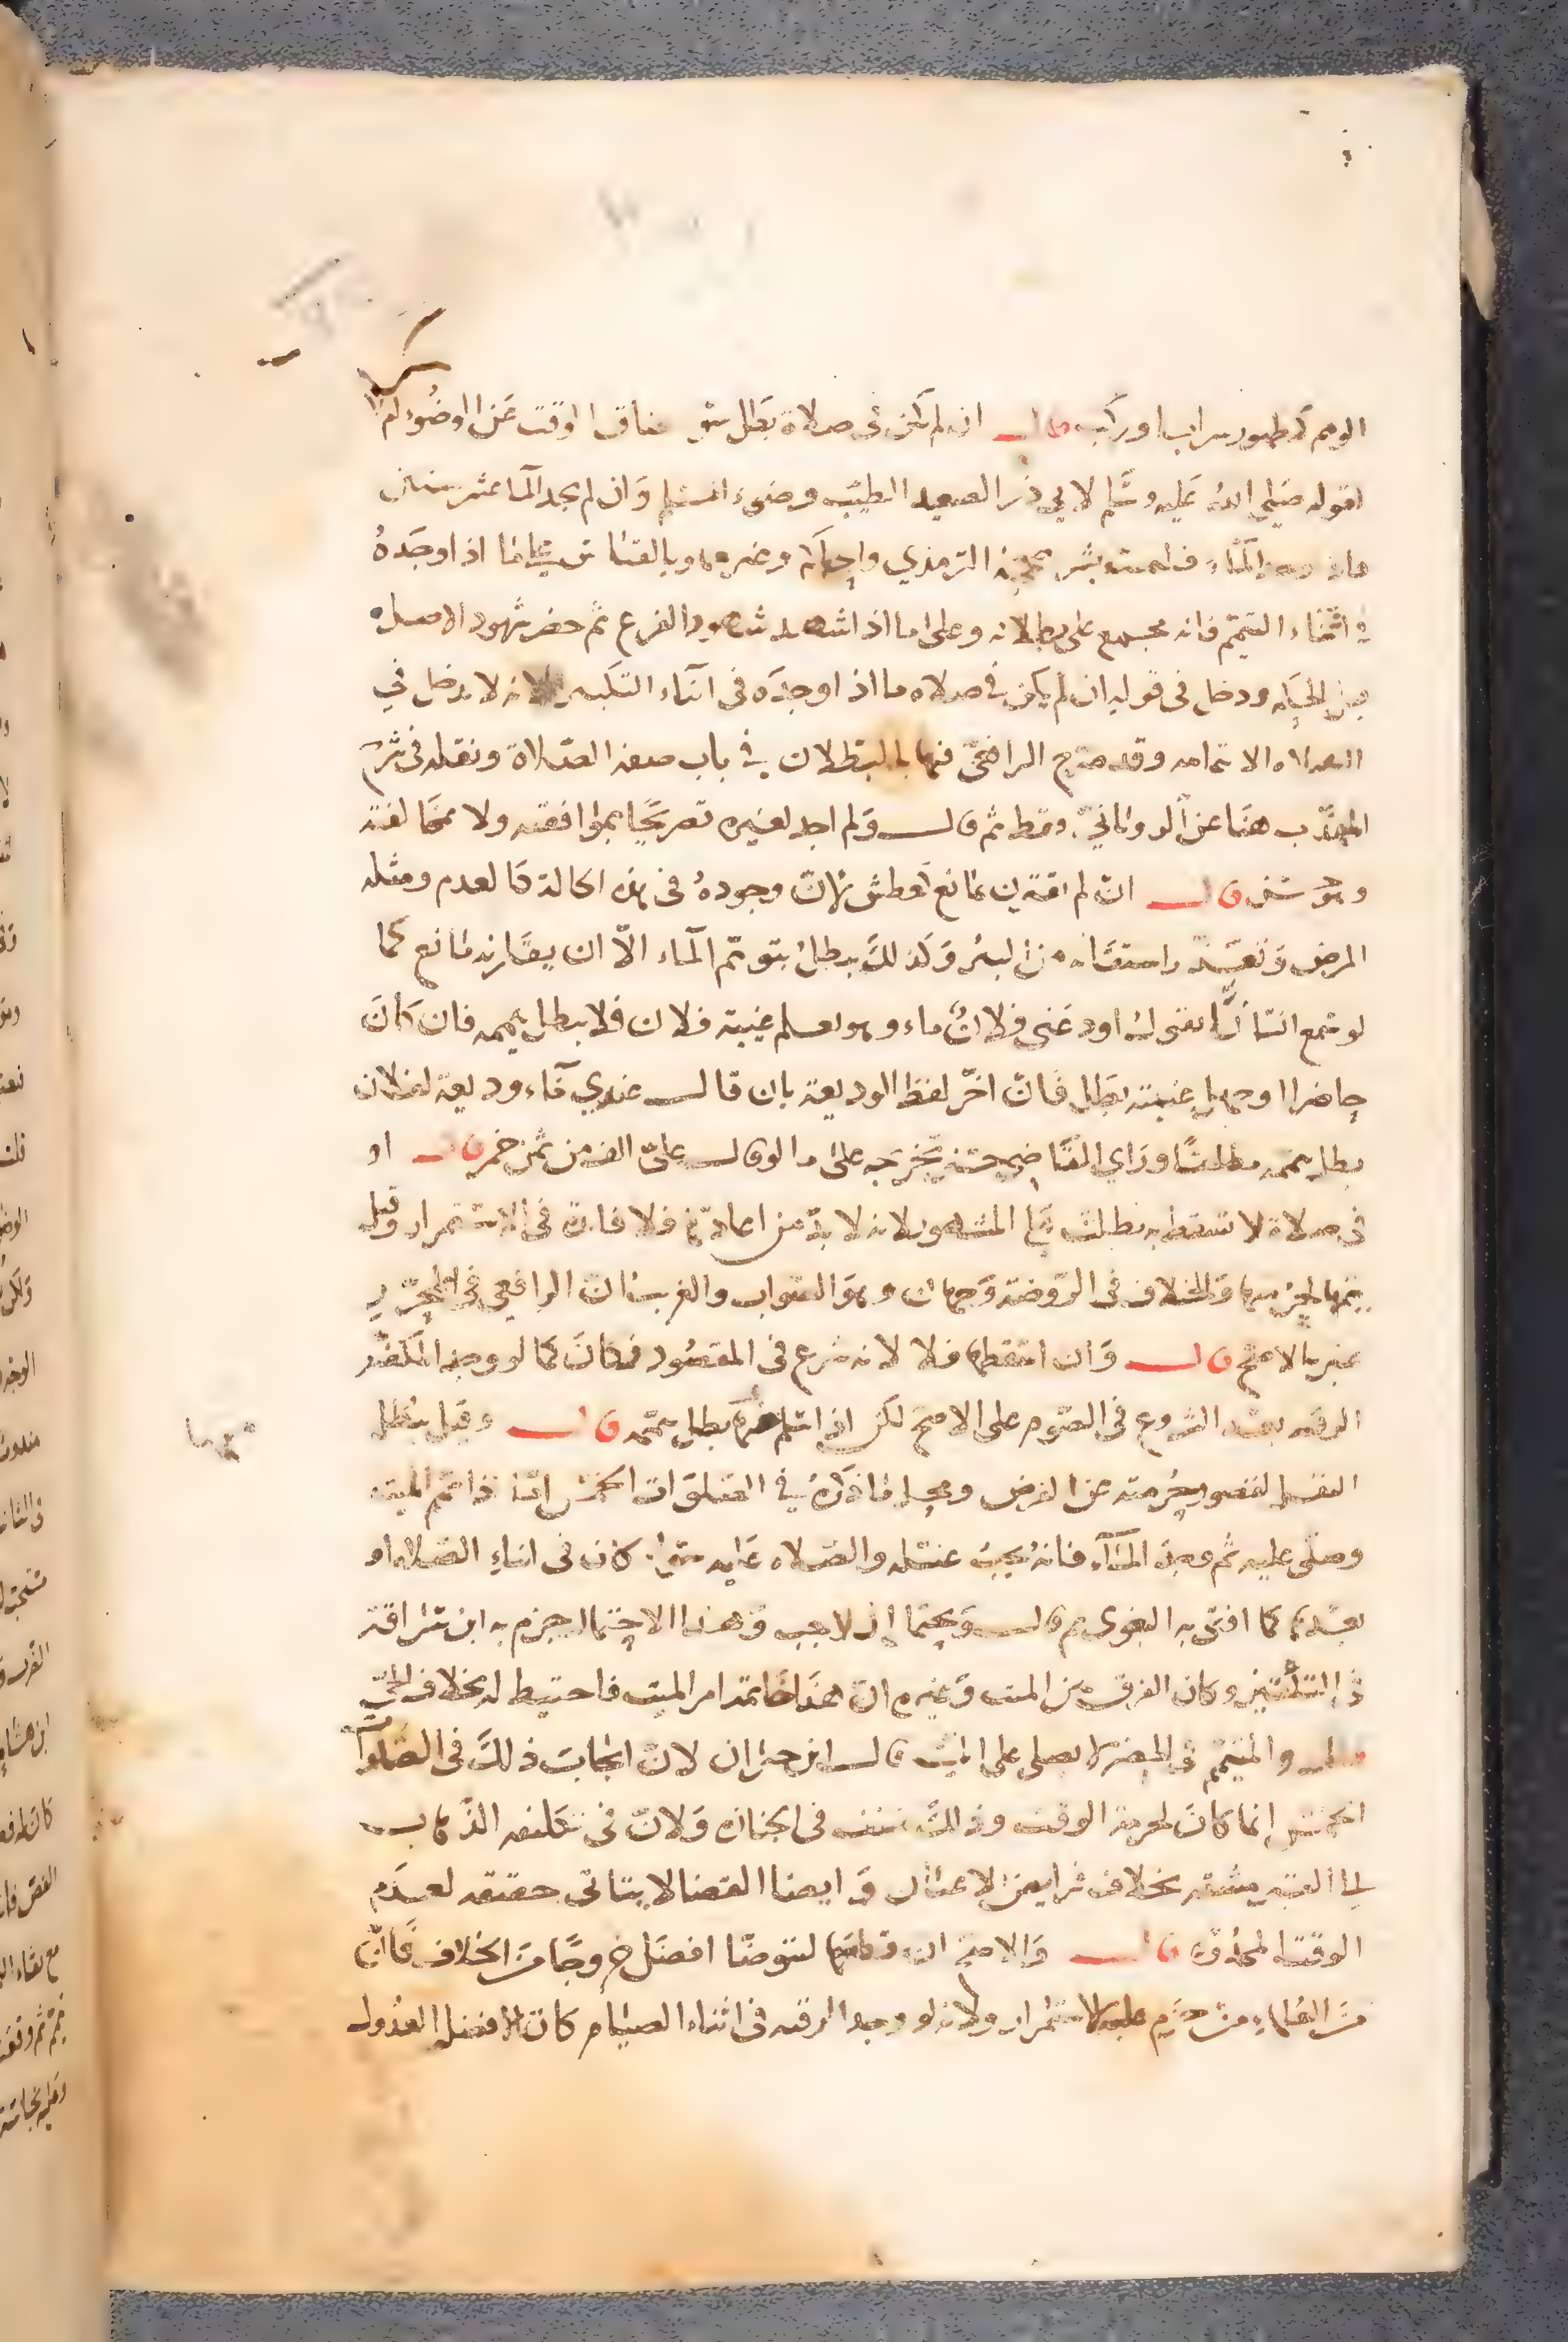 الوهم كظهور سراب او ركب قال ان لم يكن في صلاة بطل ضاق الوقت عن الوضوء ام لا
لقوله صلى الله عليه وسلم لابي ذر الصعيد الطيب وضوء المسلم وان لم يجد الماء عشر سنين
فاذا وجد الماء فليمسه بشرته صححه الترمذي والحاكم وغيرهما وبالقياس على ما اذا وجده
في اثناء التيمم فانه مجمع على بطلانه وعلى ما اذا اشهد شهود الفرع ثم حضر شهود الاصل
ودخل في قوله ان لم يكن في صلاه ما اذا وجده في اثناء التكبير لانه لا يدخل في
الصلاه الا بتمامه وقد صرح الرافعي فيها بالبطلان في باب صفة الصلاة ونقله في شرح
المهذب هنا عن الروياني فقط ثم قال ولم اجد لغيره تصريحا بموافقته ولا مخالفته
قال ان لم يقترن بمانع كعطش لان وجوده في هذه الحالة كالعدم ومثله
المرض وتعذر استقائه من البئر وكذلك يبطل بتوهم الماء الا ان يقارنه مانع كما
لو سمع انسانا يقول اودعني فلان ماء وهو يعلم غيبة فلان فلا يبطل تيممه فان كان
حاضرا او جهل غيبته بطل فان اخر لفظ الوديعة بان قال عندي ماء وديعة لفلان
بطل تيممه مطلقا وراي القاضي حسين تخريجه على ما لو قال علي الف من ثمن خمر قال او
في صلاة لا تسقط به بطلت على المشهور لانه لا بد من اعادتها فلا فائدة في الاستمرار وقيل
يتمها لحرمتها والخلاف في الروضة وجهان وهو الصواب والغريب ان الرافعي في المحرر
عبر بالاصح قال وان اسقطها فلا لانه شرع في المقصود فكان كما لو وجد المكفر
الرقبه بعد الشروع في الصوم على الاصح لكن اذا سلم منها بطل تيممه قال وقيل يبطل
النفل لقصور حرمته عن الفرض ومحل ما ذكره في الصلوات الخمس اما اذا تيمم الميت
وصلى عليه ثم وجد الماء فانه يجب غسله والصلاه عليه سواء كان في اثناء الصلاه او
بعدها كما افتى به البغوي ثم قال ويحتمل ان لا يجب وهذا الاحتمال جزم به ابن سراقة
في التلقين وكان الفرق بين الميت وغيره ان هذا خاتمة امر الميت فاحتيط له بخلاف الحي
والمتيمم في الحضر لا يصلي على الميت قال ابن خيران لان ايجاب ذلك في الصلوات
الخمس انما كان لحرمة الوقت وذلك منتف في الجنازه ولان في تكليفه الذهاب
الى القبر مشقه بخلاف فرايض الاعيان وايضا القضا لا يتاتى حقيقه لعدم
الوقت المحدود قال والاصح ان قطعها ليتوضا افضل خروجا من الخلاف فان
من العلماء من حرم عليه الاستمرار ولانه لو وجد الرقبه في اثناء الصيام كان الافضل العدول